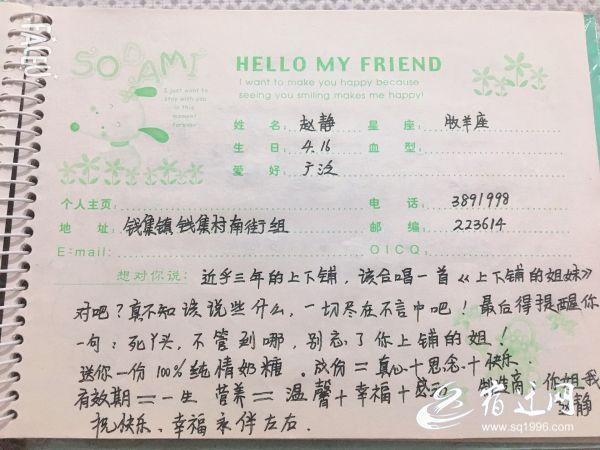 FACHU
SODAMI
I just want to
stay with you
in this
moment
forever
HELLO MY FRIEND
I want to make you happy because
seeing you smiling makes me happy!
姓 名: 赵静 星 座: 牧羊座
生 日: 4.16 血 型:
爱 好: 广泛
个人主页: 电 话: 3891998
地 址: 钱集镇钱集村南街组 邮 编: 223614
E-mail: OICQ:
想对你说: 近乎三年的上下铺，该合唱一首《上下铺的姐妹》
对吧？真不知该说些什么，一切尽在不言中吧！最后得提醒你
一句：死丫头，不管到哪，别忘了你上铺的姐！
送你一份100%纯情奶糖. 成份=真心+思念+快乐.
有效期=一生 营养=温馨+幸福+感 制造商：你姐我
赵静
祝快乐、幸福永伴左右.
宿迁网
www.sq1996.com